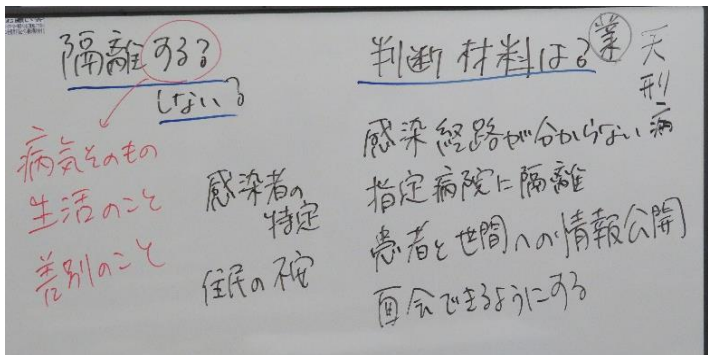 隔離する?
しない?
病気そのもの
生活のこと
差別のこと
感染者の
特定
住民の不安
判断材料は?
業
天刑病
感染経路が分からない
指定病院に隔離
患者と世間への情報公開
面会できるようにする